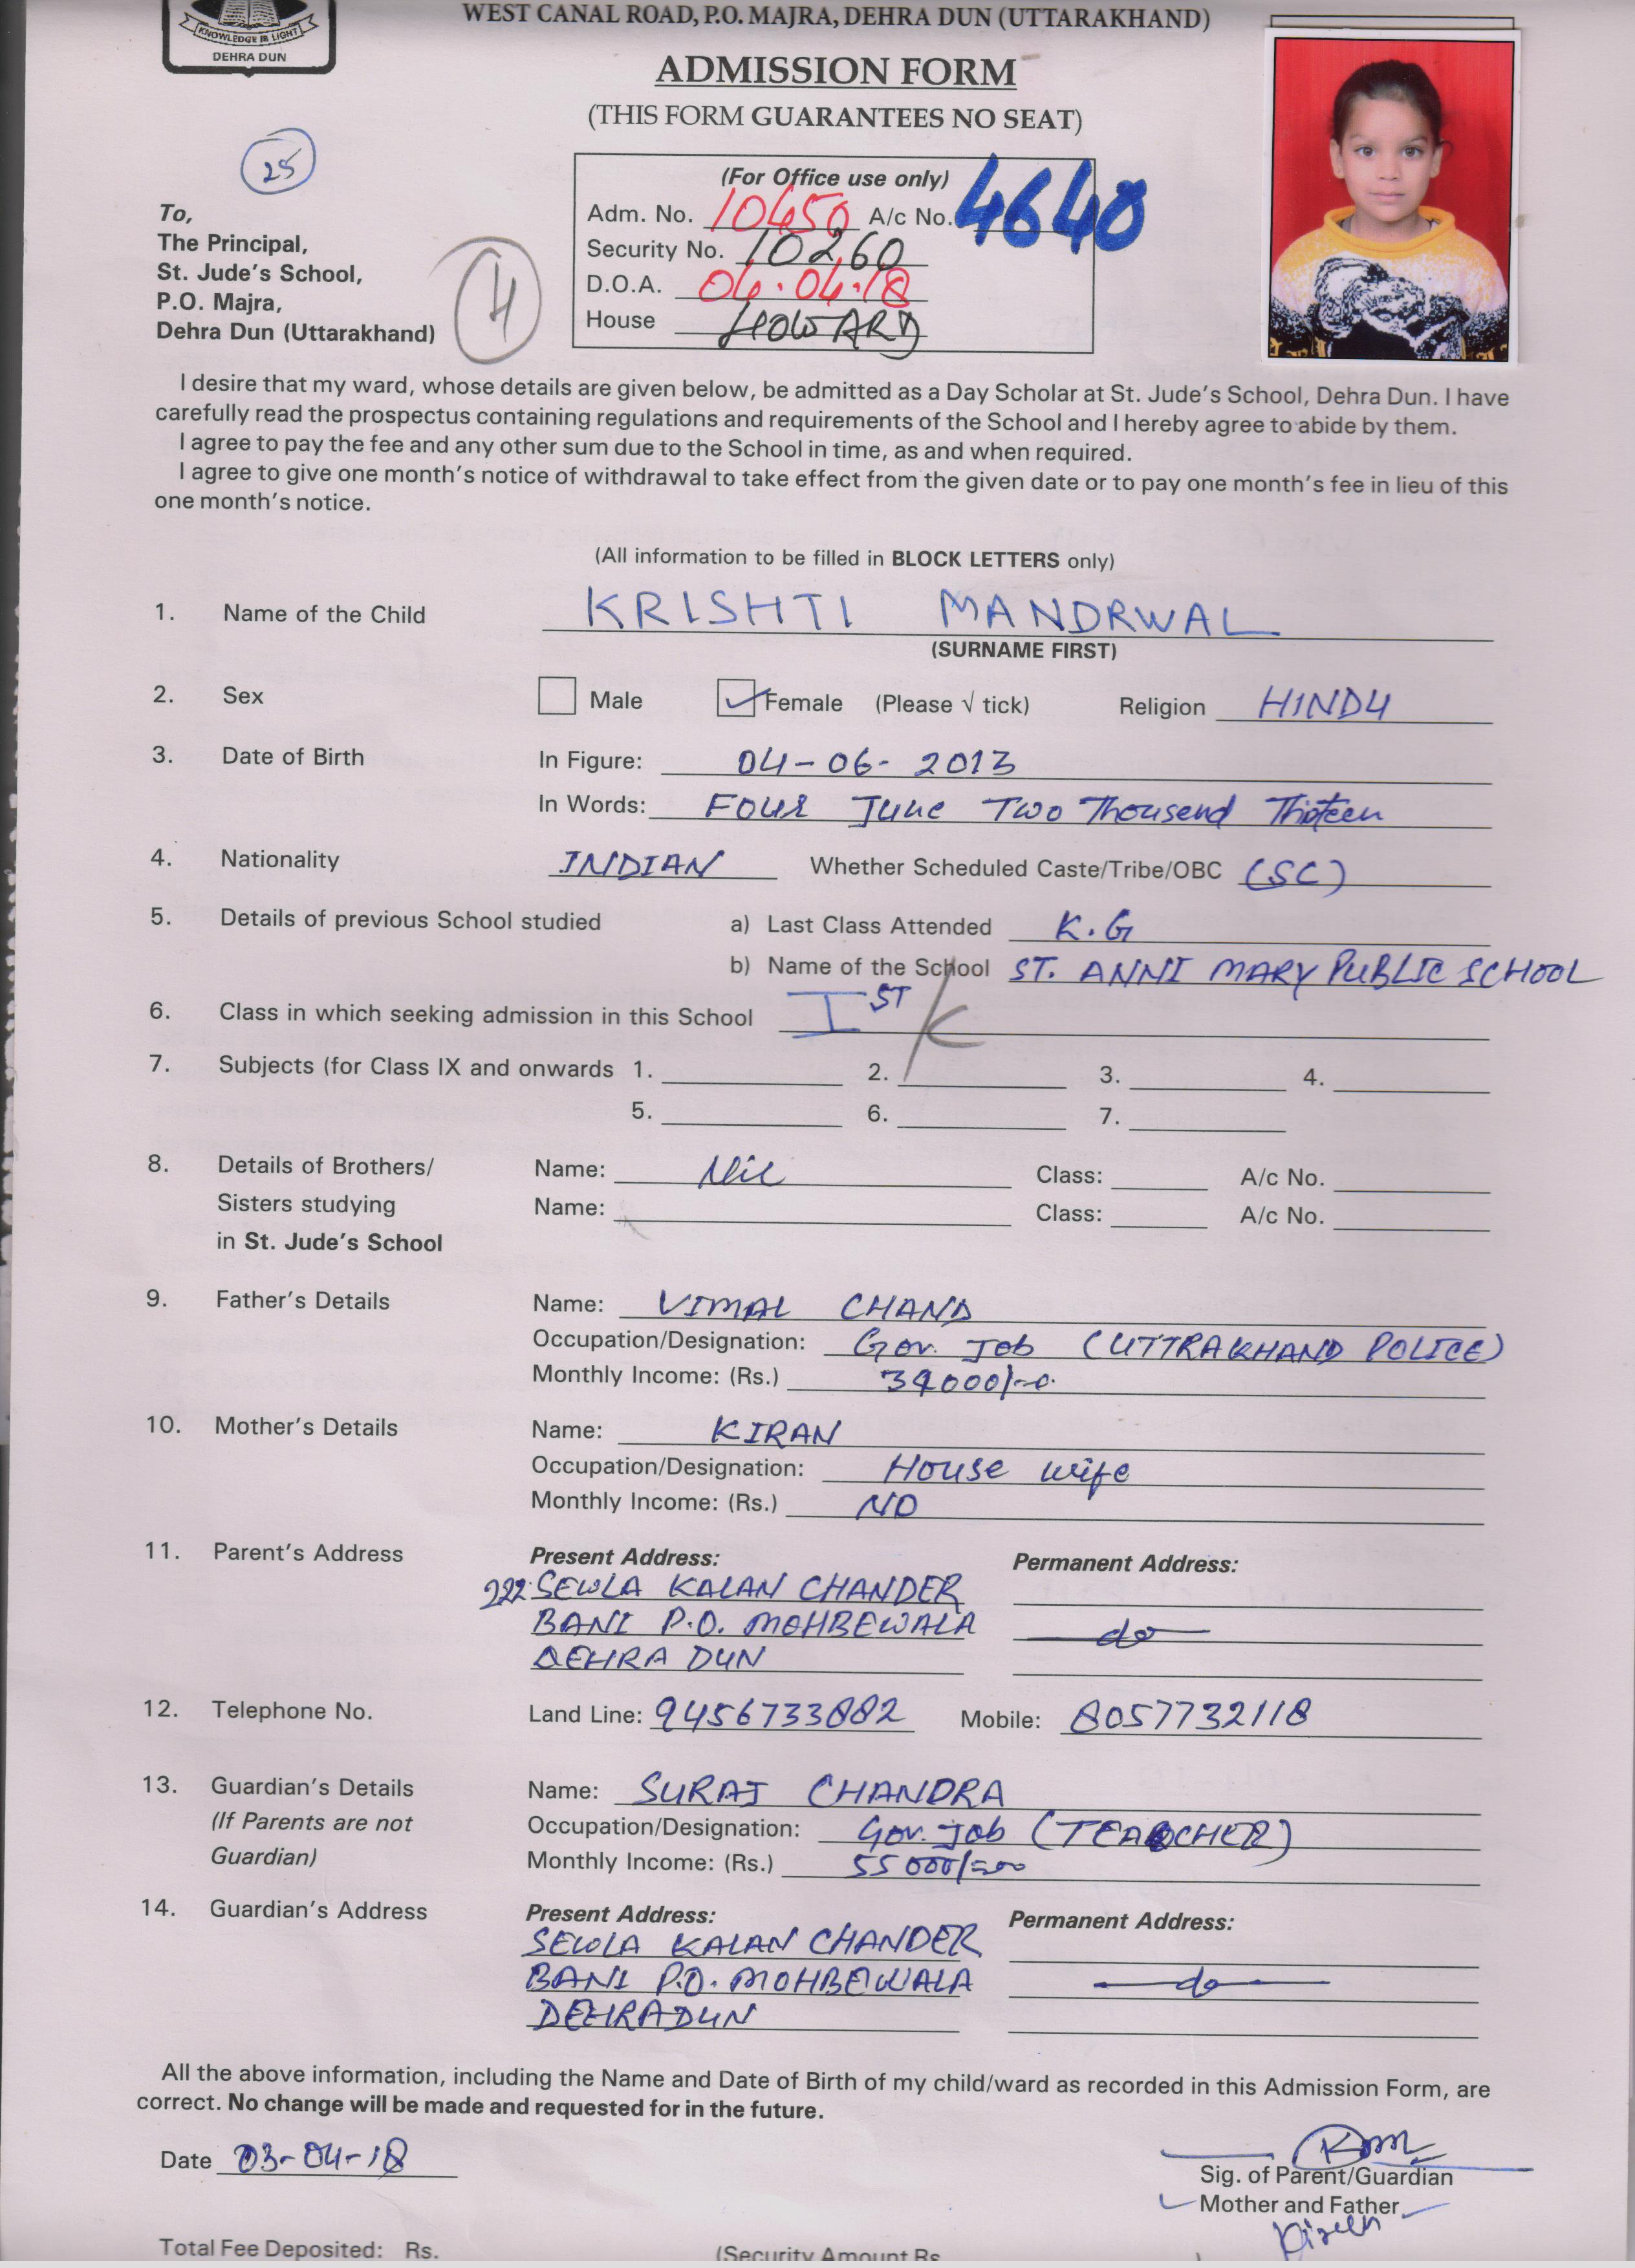 WEST CANAL ROAD, P.O. MAJRA, DEHRA DUN (UTTARAKHAND)
KNOWLEDGE IS LIGHT
DEHRA DUN
ADMISSION FORM
(THIS FORM GUARANTEES NO SEAT)
25
(For Office use only)
Adm. No. 10450 A/c No. 4640
Security No. 10260
D.O.A. 04.04.18
House HOWARD
4
To,
The Principal,
St. Jude's School,
P.O. Majra,
Dehra Dun (Uttarakhand)
I desire that my ward, whose details are given below, be admitted as a Day Scholar at St. Jude's School, Dehra Dun. I have
carefully read the prospectus containing regulations and requirements of the School and I hereby agree to abide by them.
I agree to pay the fee and any other sum due to the School in time, as and when required.
I agree to give one month's notice of withdrawal to take effect from the given date or to pay one month's fee in lieu of this
one month's notice.
(All information to be filled in BLOCK LETTERS only)
1. Name of the Child KRISHTI MANDRWAL
(SURNAME FIRST)
2. Sex Male Female (Please √ tick) Religion HINDU
3. Date of Birth In Figure: 04-06-2013
In Words: FOUR June Two Thousend Thirteen
4. Nationality INDIAN Whether Scheduled Caste/Tribe/OBC (SC)
5. Details of previous School studied a) Last Class Attended K.G
b) Name of the School ST. ANNI MARY PUBLIC SCHOOL
6. Class in which seeking admission in this School I ST K
7. Subjects (for Class IX and onwards 1. 2. 3. 4.
5. 6. 7.
8. Details of Brothers/ Name: Nil Class: A/c No.
Sisters studying Name: Class: A/c No.
in St. Jude's School
9. Father's Details Name: VIMAL CHAND
Occupation/Designation: Gov. Job (UTTRAKHAND POLICE)
Monthly Income: (Rs.) 34000/-
10. Mother's Details Name: KIRAN
Occupation/Designation: House wife
Monthly Income: (Rs.) NO
11. Parent's Address Present Address: Permanent Address:
222 SEWLA KALAN CHANDER
BANI P.O. MOHBEWALA do
DEHRA DUN
12. Telephone No. Land Line: 9456733882 Mobile: 8057732118
13. Guardian's Details Name: SURAJ CHANDRA
(If Parents are not Occupation/Designation: Gov. Job (TEACHER)
Guardian) Monthly Income: (Rs.) 55000/=
14. Guardian's Address Present Address: Permanent Address:
SEWLA KALAN CHANDER
BANI P.O. MOHBEWALA do
DEHRADUN
All the above information, including the Name and Date of Birth of my child/ward as recorded in this Admission Form, are
correct. No change will be made and requested for in the future.
Date 03-04-18
Sig. of Parent/Guardian
Mother and Father
Kiran
Total Fee Deposited: Rs. (Security Amount Rs.